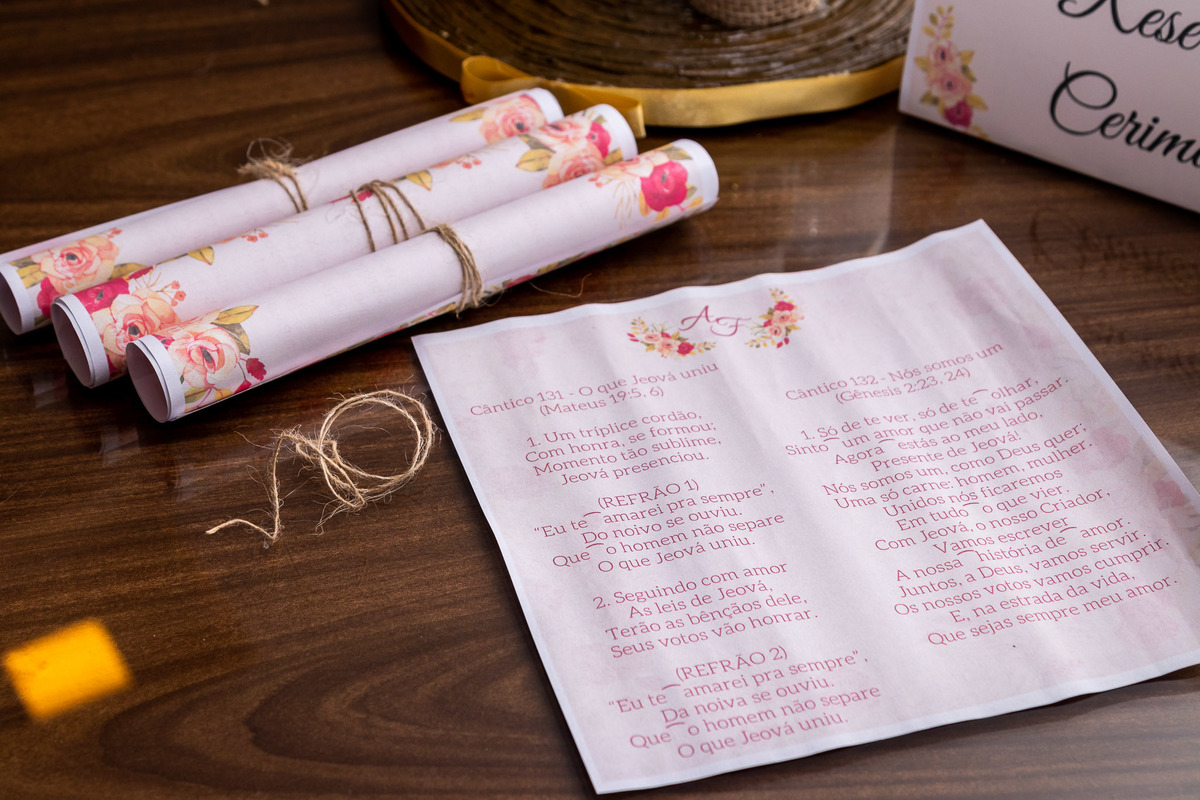 Cerim
A F
Cântico 131 - O que Jeová uniu
(Mateus 19:5, 6)
1. Um tríplice cordão,
Com honra, se formou;
Momento tão sublime,
Jeová presenciou.
(REFRÃO 1)
“Eu te‿amarei pra sempre”,
Do noivo se ouviu.
Que‿o homem não separe
O que Jeová uniu.
2. Seguindo com amor
As leis de Jeová,
Terão as bênçãos dele,
Seus votos vão honrar.
(REFRÃO 2)
“Eu te‿amarei pra sempre”,
Da noiva se ouviu.
Que‿o homem não separe
O que Jeová uniu.
Cântico 132 - Nós somos um
(Gênesis 2:23, 24)
1. Só de te ver, só de te‿olhar,
Sinto‿um amor que não vai passar.
Agora‿estás ao meu lado,
Presente de Jeová!
Nós somos um, como Deus quer;
Uma só carne: homem, mulher.
Unidos nós ficaremos
Em tudo‿o que vier.
Com Jeová, o nosso Criador,
Vamos escrever
A nossa‿história de‿amor.
Juntos, a Deus, vamos servir.
Os nossos votos vamos cumprir.
E, na estrada da vida,
Que sejas sempre meu amor.